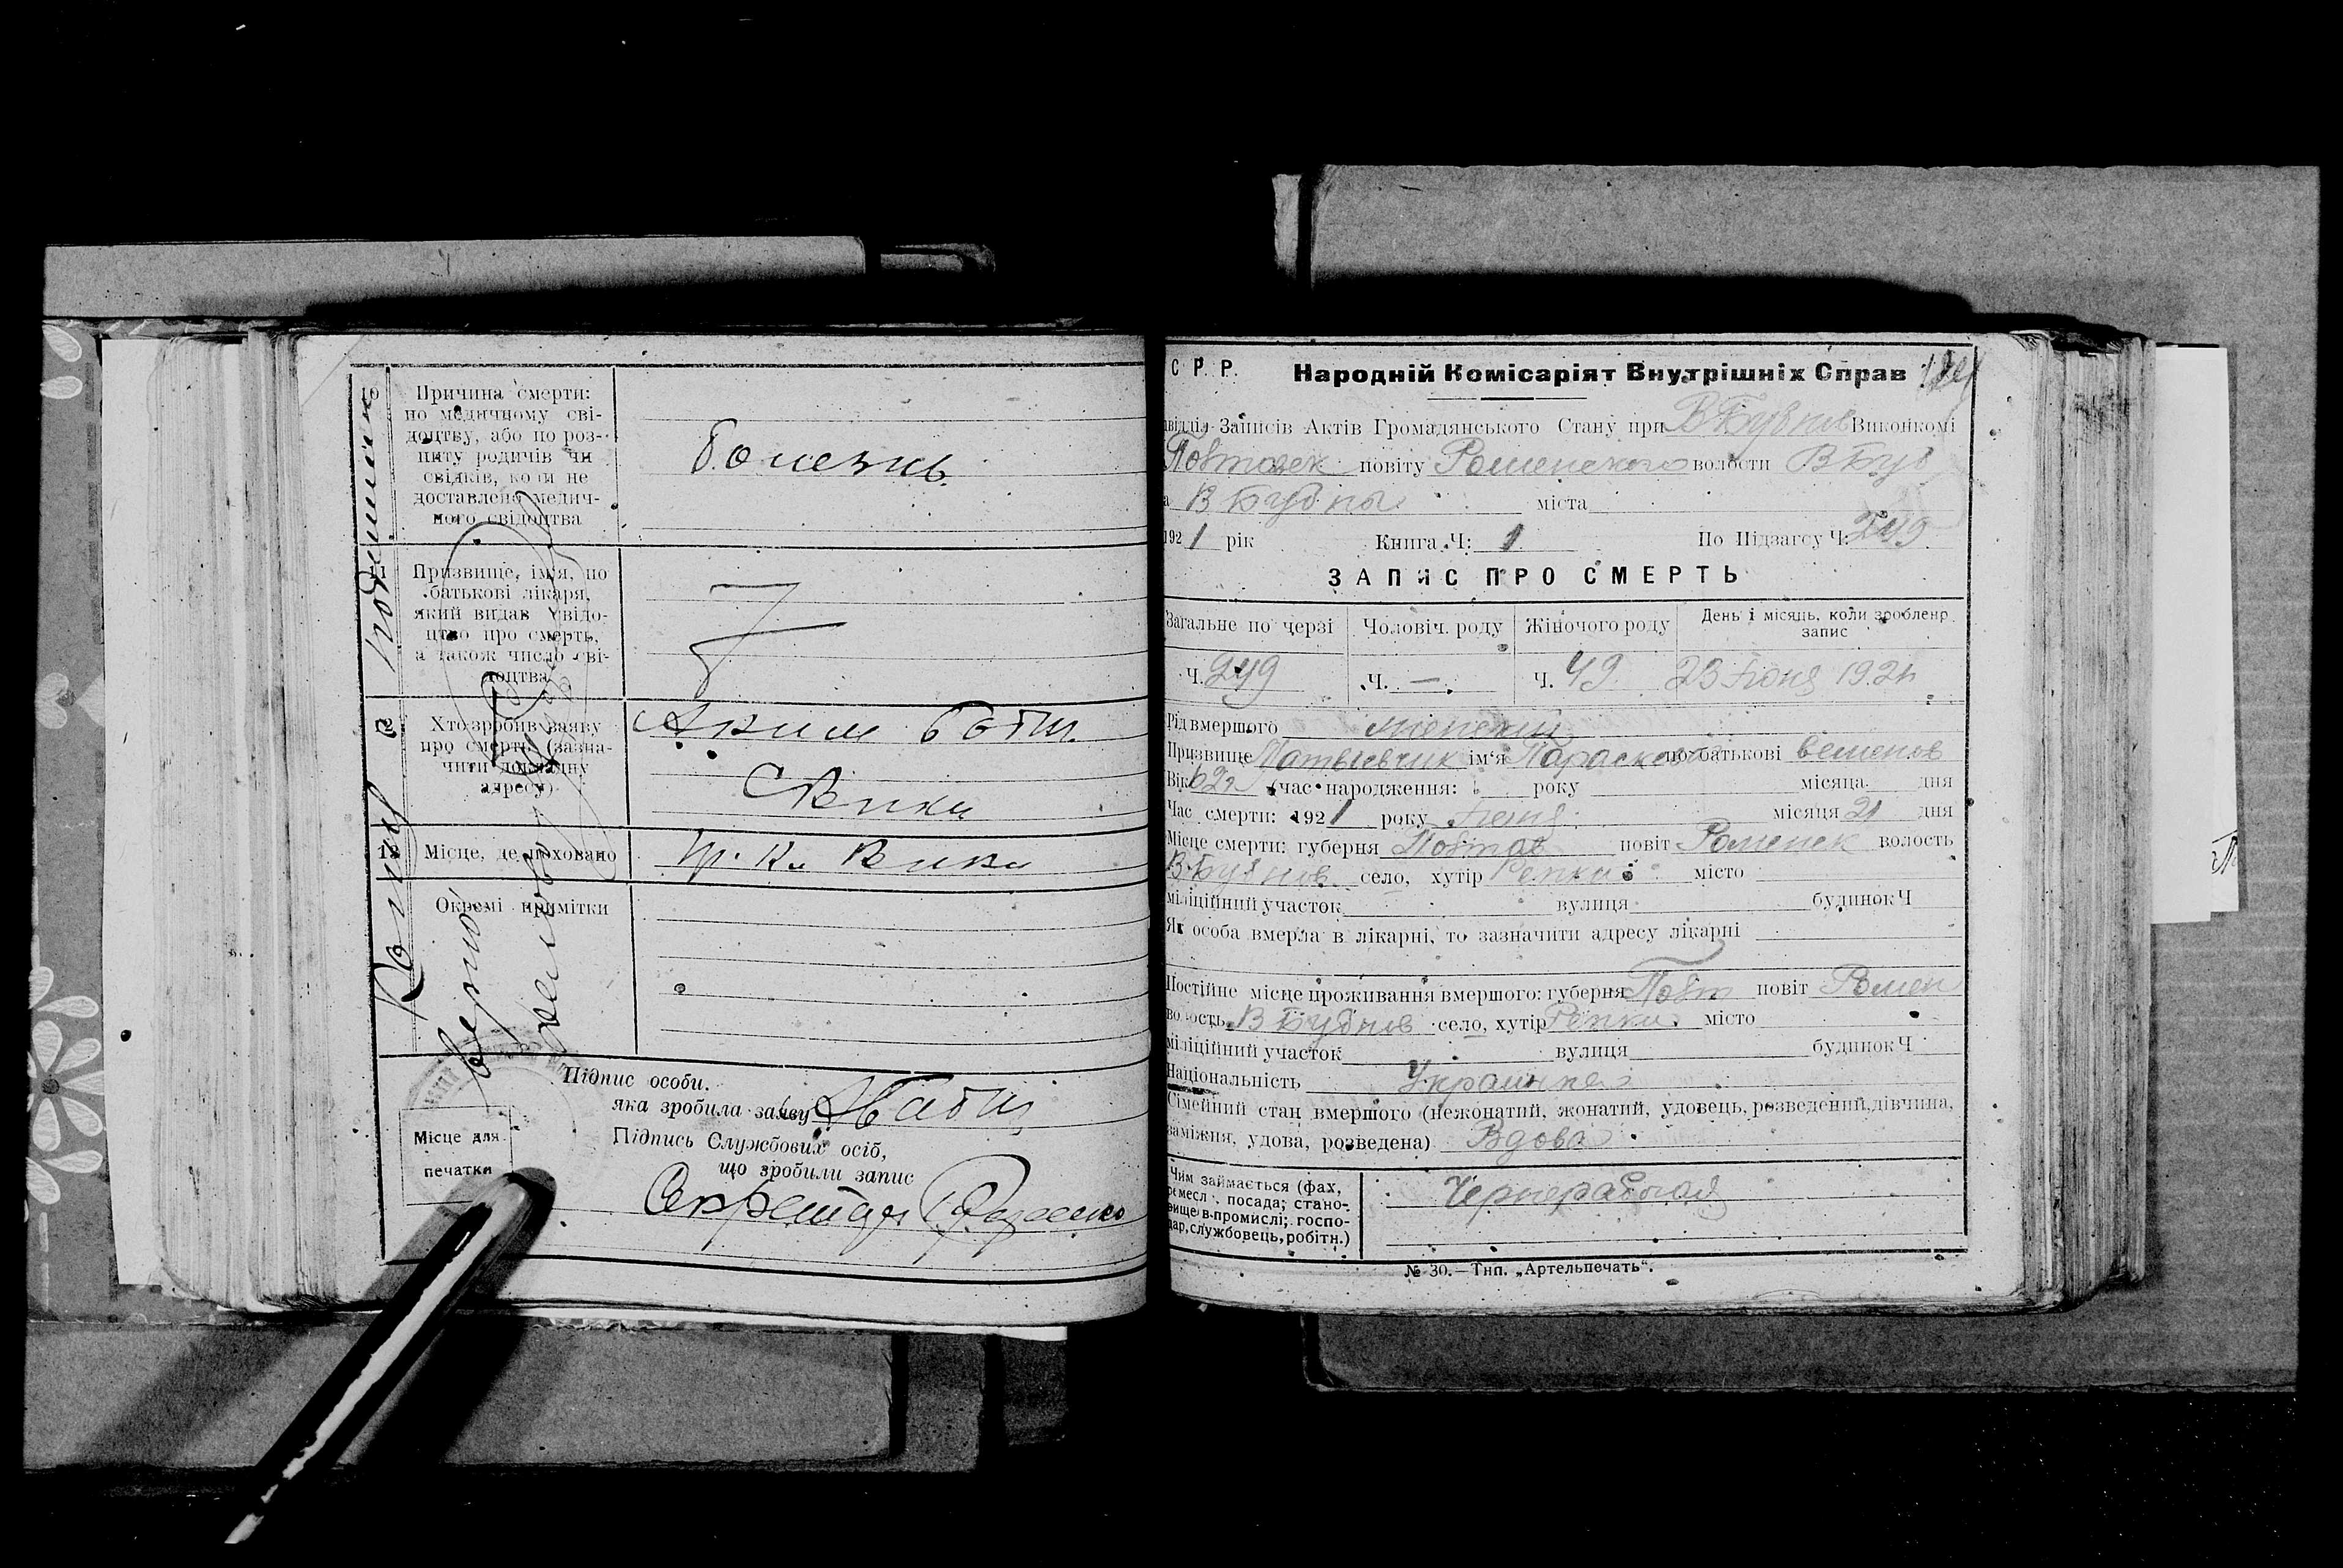 10 Причина смерти:
по медичному сві-
доцтву, або по роз-
питу родичів чи
свідків, коли не
доставлено медич-
ного свідоцтва
болезнь
11 Призвище, ім'я, по
батькові лікаря,
який видав свідо-
цтво про смерть,
а також число сві-
доцтва
Хто зробив заяву
про смерть (зазна-
чити докладну
адресу)
Аким
13 Місце, де поховано
Окремі примітки
Копия
верно:
Підпис особи,
яка зробила заяву
Підпись Службових осіб,
що зробили запис
Секретарь
Місце для
печатки
С Р. Р. Народній Комісаріят Внутрішніх Справ
Записів Актів Громадянського Стану при В Бубнов Виконкомі
Повтавск повіту Роменского волости В Буб
В Бубны міста
1921 рік Книга Ч: 1 По Підзагсу Ч: 249
ЗАПИС ПРО СМЕРТЬ
Загальне по черзі Чоловіч. роду Жіночого роду День і місяць, коли зроблено
запис
Ч. 249 Ч. — Ч. 49 23 Июня 1921
Рід вмершого женский
Призвище Матвиевчик ім'я Параскева по батькові Семенов
Вік 62 (час народження: року місяця дня
Час смерти: 1921 року Июня місяця 21 дня
Місце смерти: губерня Повтав повіт Роменск волость
В-Бубнов село, хутір Репки місто
міліційний участок вулиця будинок Ч
Як особа вмерла в лікарні, то зазначити адресу лікарні
Постійне місце проживання вмершого: губерня Повт повіт Ромен
волость В Бубнов село, хутір Репки місто
міліційний участок вулиця будинок Ч
Національність Украинка
Сімейний стан вмершого (нежонатий, жонатий, удовець, розведений, дівчина,
заміжня, удова, розведена) Вдова
Чим займається (фах,
ремесл., посада; стано-
вище в промислі; госпо-
дар, службовець, робітн.)
Чернорабочая
№ 30.—Тип. „Артельпечать“.